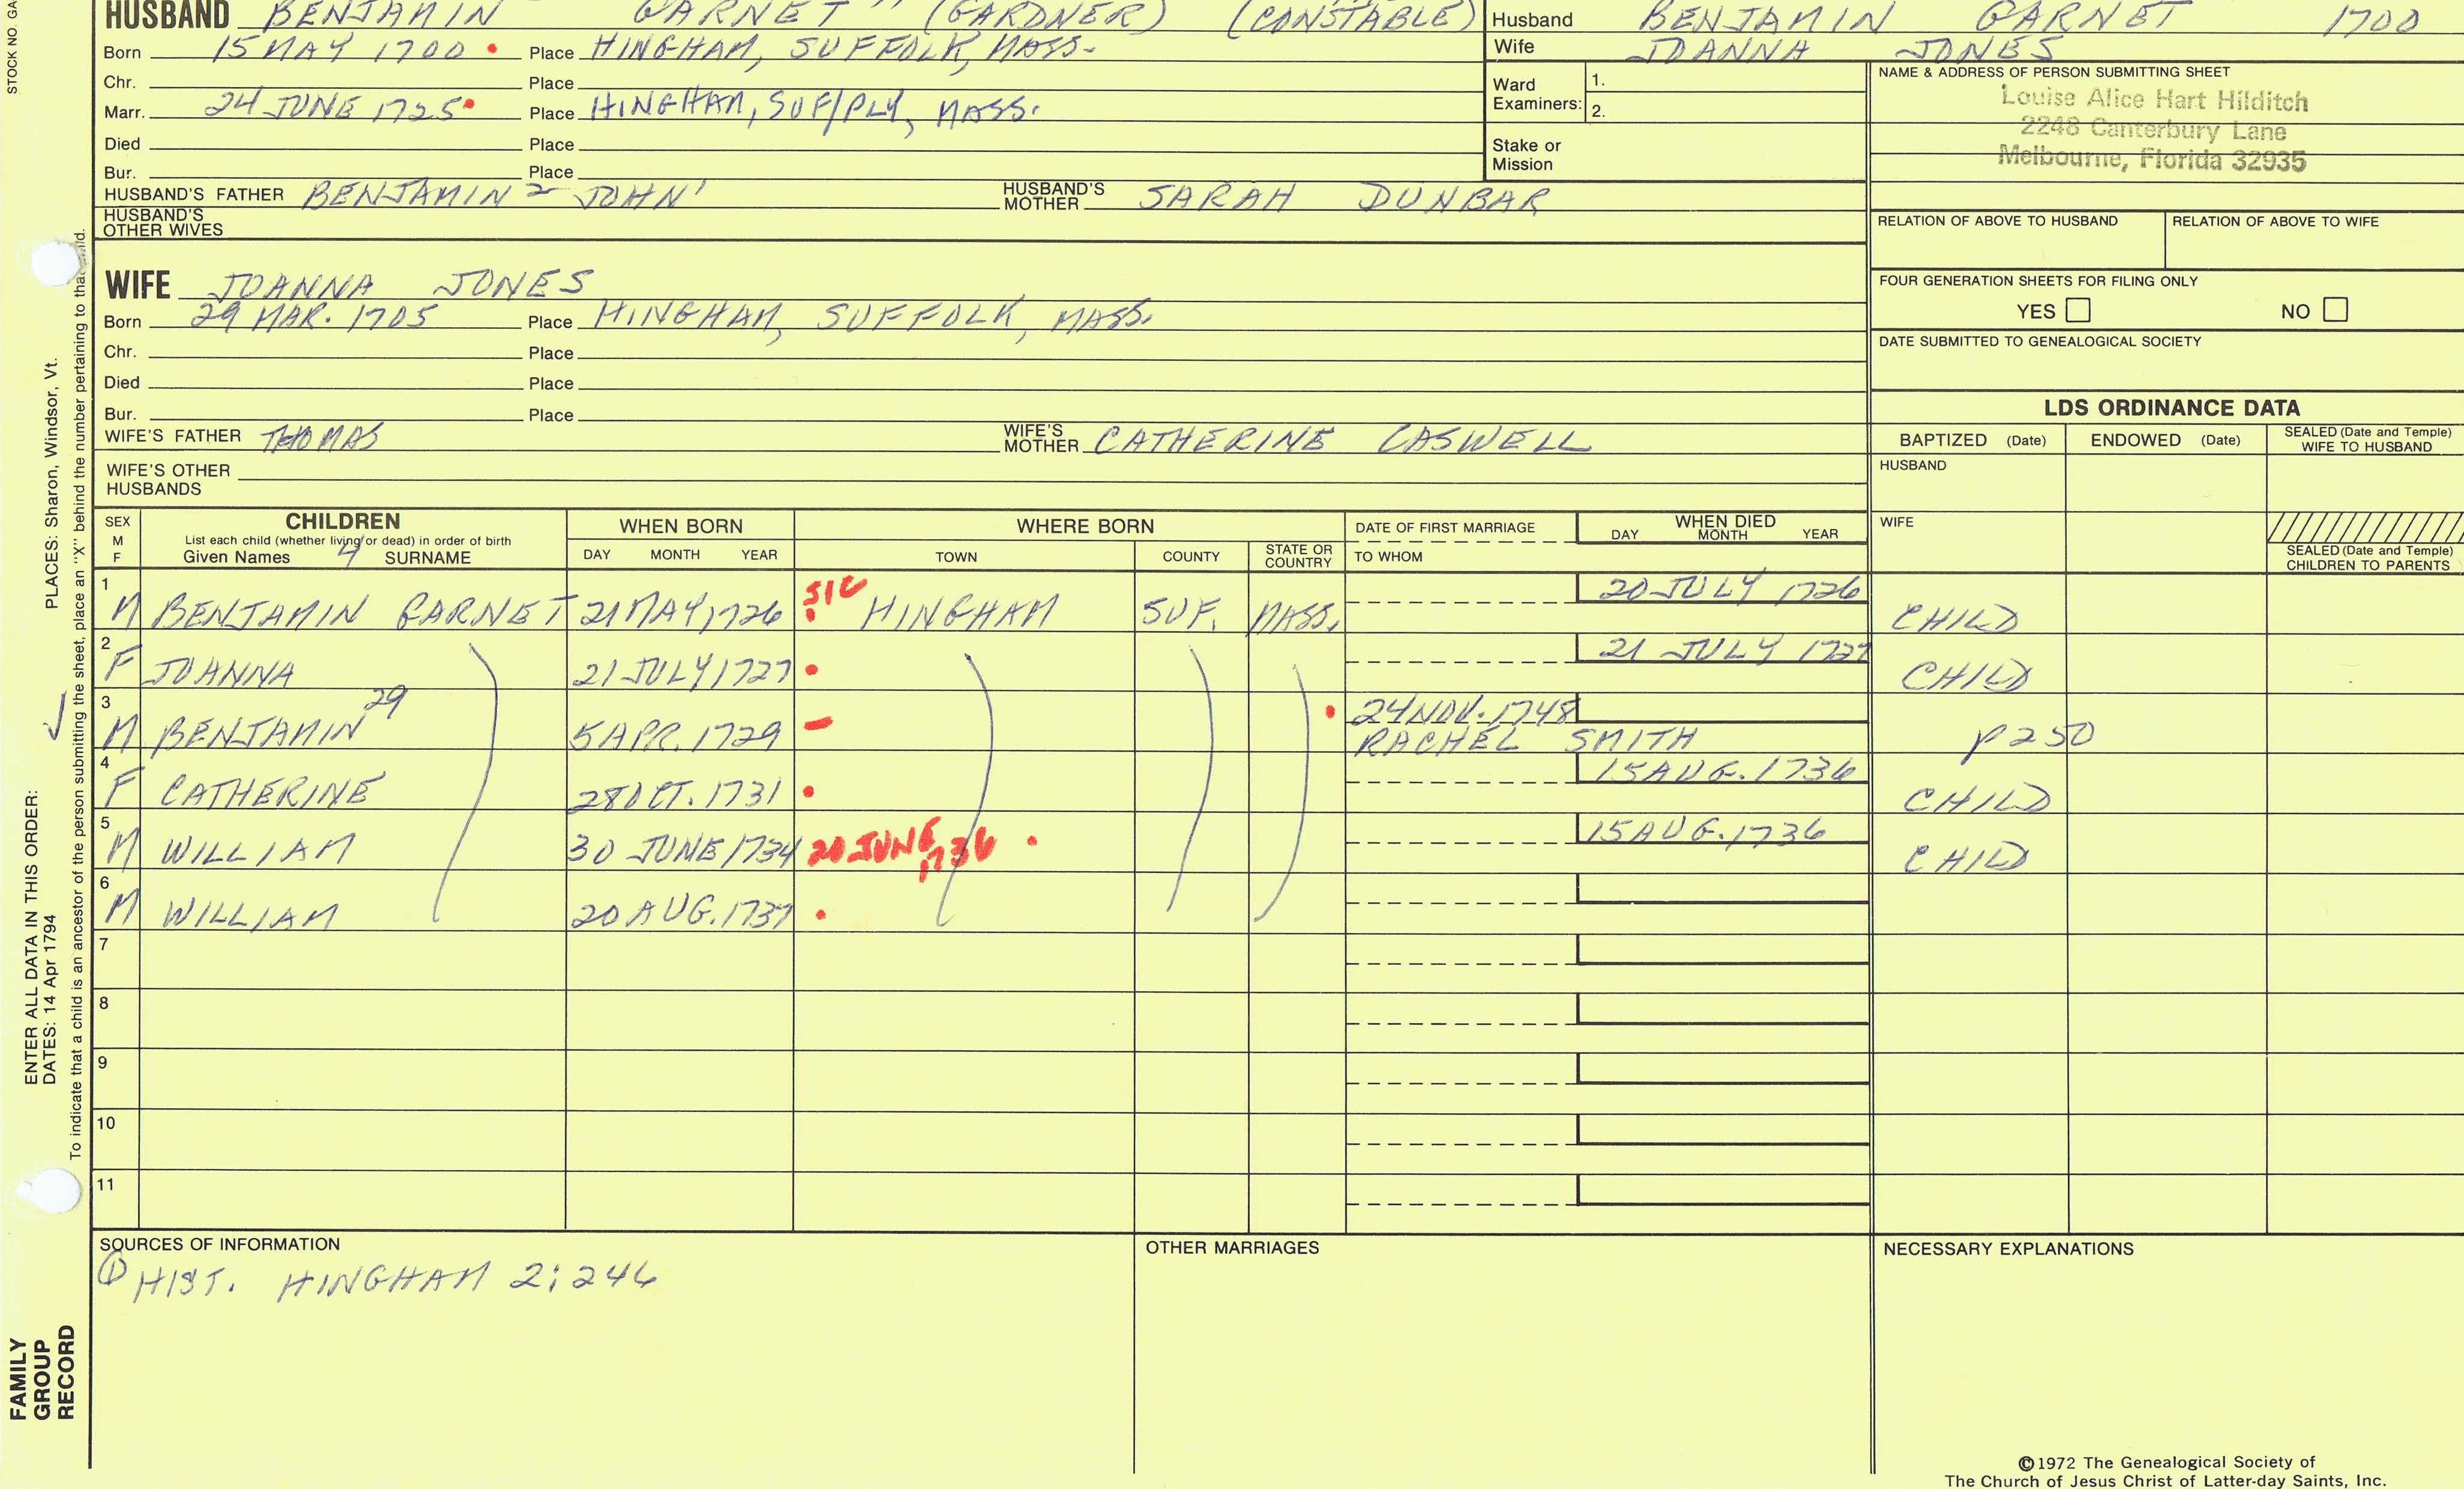 STOCK NO. GA
HUSBAND BENJAMIN GARNET (GARDNER) (CONSTABLE)
Husband BENJAMIN GARNET 1700
Born 15 MAY 1700 Place HINGHAM, SUFFOLK, MASS.
Wife JOANNA JONES
Chr. Place
Ward Examiners: 1.
2.
NAME & ADDRESS OF PERSON SUBMITTING SHEET
Louise Alice Hart Hilditch
2248 Canterbury Lane
Melbourne, Florida 32935
Marr. 24 JUNE 1725 Place HINGHAM, SUF/PLY, MASS.
Died Place
Stake or Mission
Bur. Place
HUSBAND'S FATHER BENJAMIN 2 JOHN 1 HUSBAND'S MOTHER SARAH DUNBAR
HUSBAND'S OTHER WIVES
RELATION OF ABOVE TO HUSBAND RELATION OF ABOVE TO WIFE
WIFE JOANNA JONES
FOUR GENERATION SHEETS FOR FILING ONLY
YES NO
Born 29 MAR. 1705 Place HINGHAM, SUFFOLK, MASS.
Chr. Place
DATE SUBMITTED TO GENEALOGICAL SOCIETY
Died Place
Bur. Place
WIFE'S FATHER THOMAS WIFE'S MOTHER CATHERINE CASWELL
WIFE'S OTHER HUSBANDS
LDS ORDINANCE DATA
BAPTIZED (Date) ENDOWED (Date) SEALED (Date and Temple) WIFE TO HUSBAND
HUSBAND
WIFE
SEALED (Date and Temple) CHILDREN TO PARENTS
SEX M F
CHILDREN
List each child (whether living or dead) in order of birth
Given Names 4 SURNAME
WHEN BORN
DAY MONTH YEAR
WHERE BORN
TOWN COUNTY STATE OR COUNTRY
DATE OF FIRST MARRIAGE
TO WHOM
WHEN DIED
DAY MONTH YEAR
1 M BENJAMIN GARNET 21 MAY, 1726 SIC HINGHAM SUF. MASS. 20 JULY 1726 CHILD
2 F JOANNA 21 JULY, 1727 21 JULY 1727 CHILD
3 M BENJAMIN 29 5 APR. 1729 24 NOV. 1748 RACHEL SMITH p 250
4 F CATHERINE 28 OCT. 1731 15 AUG. 1736 CHILD
5 M WILLIAM 30 JUNE 1734 20 JUNE 1736 15 AUG. 1736 CHILD
6 M WILLIAM 20 AUG. 1737
7
8
9
10
11
SOURCES OF INFORMATION
① HIST. HINGHAM 2:246
OTHER MARRIAGES
NECESSARY EXPLANATIONS
©1972 The Genealogical Society of
The Church of Jesus Christ of Latter-day Saints, Inc.
ENTER ALL DATA IN THIS ORDER:
DATES: 14 Apr 1794 PLACES: Sharon, Windsor, Vt.
To indicate that a child is an ancestor of the person submitting the sheet, place an "X" behind the number pertaining to that child.
FAMILY
GROUP
RECORD